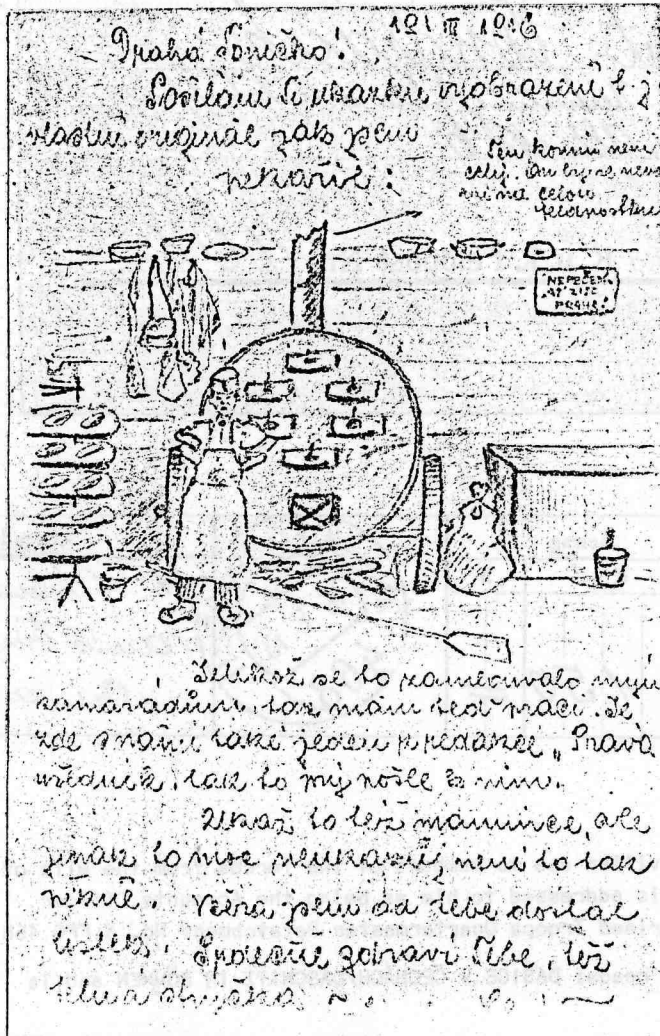 12/III 1916
Drahá Toničko!
Posílám Ti ukázku vyobrazení t. j
vlastní originál jak jsem
pekařil:
Ten komín není
celý. On by se nevešel
celou
NEPEČEM
AŤ ŽIJE
PRAHA!
Jelikož se to zamlouvalo mým
kamarádům, tak mám teď práci. Je
zde s námi také jeden z redakce „Práva
úředník, tak to prý pošle
Ukaž to též mamince, ale
jinak to moc neukazuj není to tak
pěkné. Včera jsem od tebe dostal
lístek. Srdečně zdraví Tebe, též